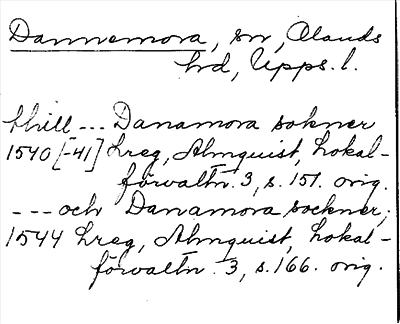 Dannemora, sn, Olands
hd, Upps. l.
till --- Danamora sokner
1540 [-41] hreg, Almquist, Lokal-
förvaltn. 3, s. 151. orig.
--- och Danamora sockner,
1544 hreg, Almquist, Lokal-
förvaltn. 3, s. 166. orig.